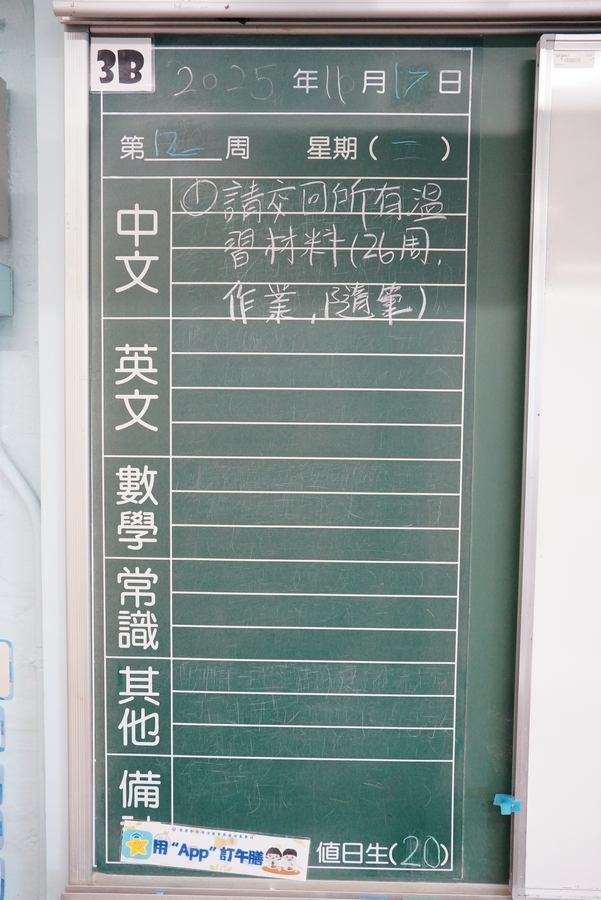 3B
2025年11月17日
第12周 星期(二)
中文
①請交回所有溫
習材料(26周,
作業,隨筆)
英文
數學
常識
其他
備
用“App”訂午膳
值日生(20)